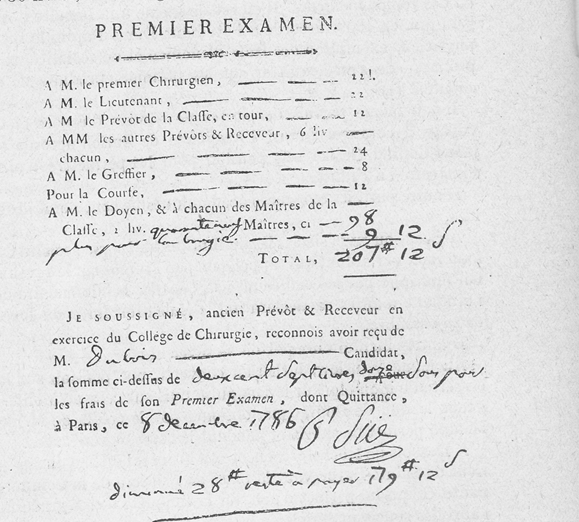 PREMIER EXAMEN.
A M. le premier Chirurgien, — — — 22 l.
A M. le Lieutenant, — — — 22
A M. le Prévôt de la Classe, en tour, — — 12
A MM les autres Prévôts & Receveur, 6 liv —
chacun, — — — 24
A M. le Greffier, — — — 8
Pour la Course, — — — 12
A M. le Doyen, & à chacun des Maîtres de la —
Classe, 2 liv. quarante neuf Maîtres, ci — 98
plus pour la bougie — — — 9 12 s
TOTAL, 207 ₶ 12
JE SOUSSIGNÉ, ancien Prévôt & Receveur en
exercice du Collége de Chirurgie, reconnois avoir reçu de
M. Dubois — Candidat,
la somme ci-dessus de deux cent sept livres douze sous pour
les frais de son Premier Examen, dont Quittance,
à Paris, ce 8 decembre 1786 Süe
diminué 28 ₶ reste à payer 179 ₶ 12 s